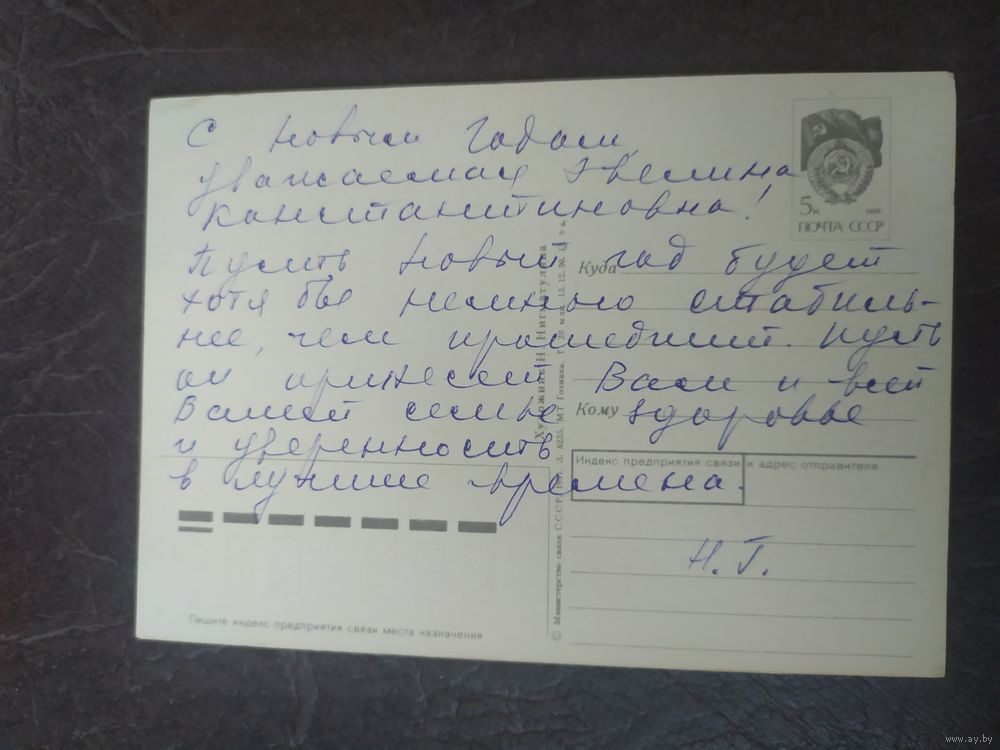 С Новым Годом,
уважаемая Эвелина
Константиновна!
Пусть Новый год будет
хотя бы немного стабиль-
нее, чем прошедший. Пусть
он принесет Вам и всей
Вашей семье здоровье
и уверенность
в лучшие времена.
Н. Г.
5к 1988
ПОЧТА СССР
Куда
Кому
Индекс предприятия связи и адрес отправителя
Пишите индекс предприятия связи места назначения
Художник Н. Нигматулина
© Министерство связи СССР,
www.ay.by